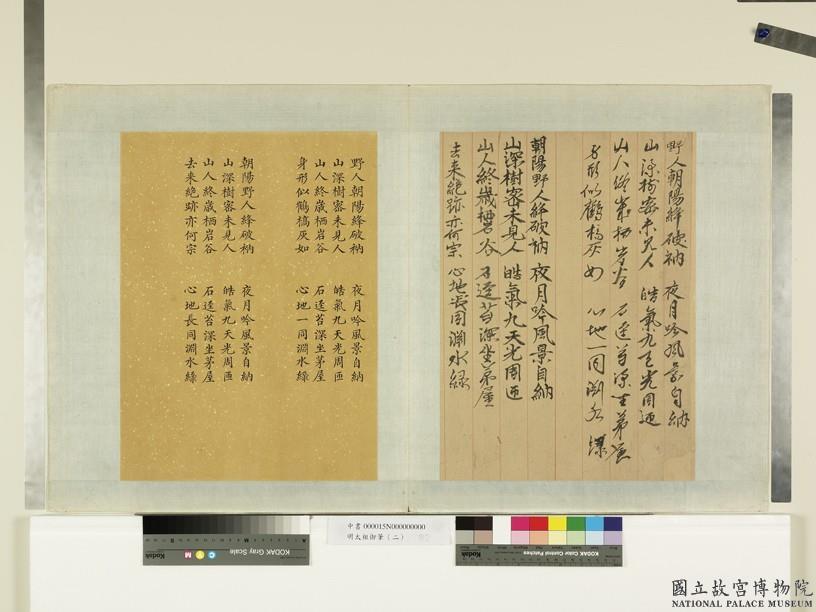 野人朝陽絳破衲 夜月吟風景自納
山深樹密未見人 皓氣九天光周匝
山人終歲栖岩谷 石逕苔深坐茅屋
身形似鶴槁灰如 心地一同澗水綠
朝陽野人絳破衲 夜月吟風景自納
山深樹密未見人 皓氣九天光周迊
山人終歲栖岩谷 石逕苔深坐茅屋
去来絕跡亦何宗 心地長同澗水綠
野人朝陽絳破衲 夜月吟風景自納
山深樹密未見人 皓氣九天光周匝
山人終歲栖岩谷 石逕苔深坐茅屋
身形似鶴槁灰如 心地一同澗水綠
朝陽野人絳破衲 夜月吟風景自納
山深樹密未見人 皓氣九天光周匝
山人終歲栖岩谷 石逕苔深坐茅屋
去來絕跡亦何宗 心地長同澗水綠
中書 000015N000000000
明太祖御筆（二）
Kodak Gray Scale
C Y M
Kodak Color Control Patches
國立故宮博物院
NATIONAL PALACE MUSEUM